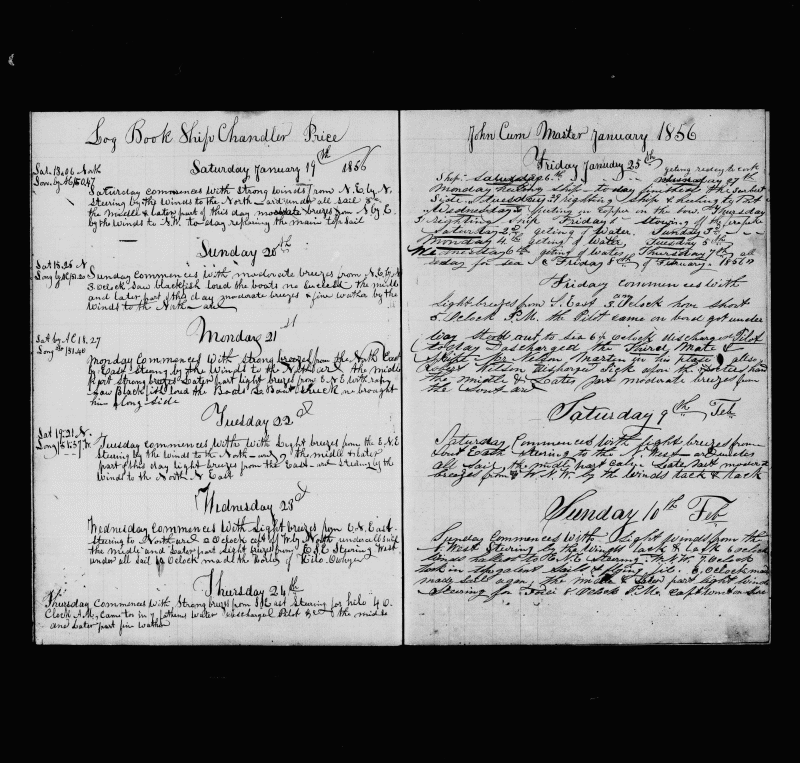 Log Book Ship Chandler Price
Saturday January 19th 1856
Lat. 18.06 North
Long by
Saturday commences with strong winds from N.E. by N.
Steering by the winds to the North-ard under all sail &c
the middle & later part of this day modrate breezes from N by E.
by the winds to N.W. to day repairing the main topsail
Sunday 20th
Lat 18.25 N
Long by
Sunday Commences with moderate breezes from N.E. by N
3. oclock Saw blackfish lored the boats no Suckcess the middle
and later part of this day modrate breezes & fine wather by the
winds to the North ard
Monday 21st
Lat by AC 18.27
Long 151.40
Monday Commences with Strong breezes from the North East
by East Steering by the winds to the North ard the middle
part Strong breezes Later part light breezes from E.N.E with rainy
Saw Blackfish lored the Boats La Boat Struck no brought
him along Side
Tuesday 22d
Lat 19.21 N.
Long
Tuesday commences with with Light breezes from the E.N.E
Steering by the winds to the North-ard the middle & later
part of this day light breezes from the East-ard Steering by the
winds to the North N East
Wednesday 23d
Wednesday Commences With Light breezes from E.N. East.
Steering to North ard oclock W. by North under all Sail
the midle and Later part Light breezes from E.S.E Steering West
under all Sail 10 Oclock made the of Hilo Owhyee
Thursday 24th
Thursday Commences With Strong breezes from S East Steering for hilo 4 O.
Clock A.M. Came to in 9 fathems water discharged Pilot & the midle
and Later part fine wather
John Cum Master January 1856
Friday January 25th
Ship Saturday 26th geting redey to cork
Monday heeling Ship to day finished the Sarbert
Side Tuesday 29 righting Ship & heeling to Port
Wednesday puting on Copper in the bow. Thursday
31 righting Ship Friday 1 Stowing of the water
Saturday 2nd geting of water. Sunday 3rd
Monday 4th geting of Water. Tuesday 5th
Wednesday 6th geting of Water Thursday 7th all
redey for Sea & Friday 8th of February. 1856
Friday commences with
light breezes from S. East 3. Oclock hove short
5 Oclock P.M. the Pilot came on bord got under
way stood out to sea 6 Oclock discharged Pilot
to day Dascharged the Third Mate &
Shipt Mr Nelson Marten in his place also
Robert Wilson discharged Sick upon the hands
the middle & Later part moderate breezes from
the Sout ard
Saturday 9th Feb
Saturday Commences With light breezes from
Sout East Steering to the N. West ard under
all Sail the midle part calm Later part modrate
breezes from N.W. by the winds tack & tack
Sunday 10th Feb
Sunday Commences With Light Winds from the
N West Steering by the Winds Tack & tack 6 oclock
7 Oclock
took in topgalant Sails & flying jib. 6. Oclock
made Sail agen, the midle & Later part light winds
Steering for 8 Oclock P.M. capt went on Shore